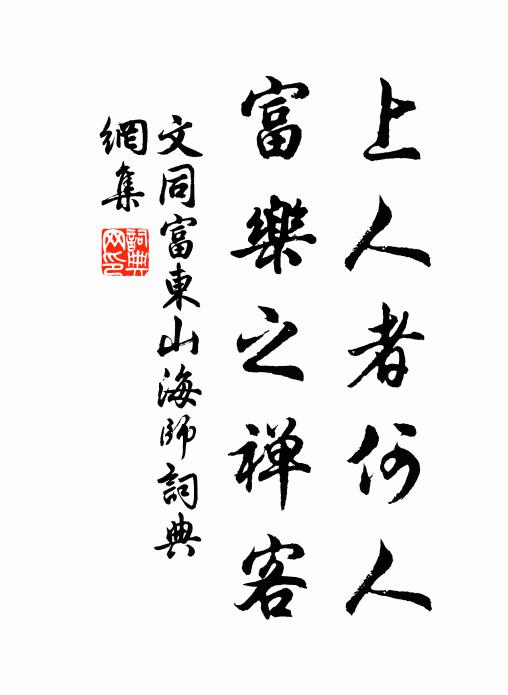 上人者何人
富樂之禅客
文同富東山海師詞典
網集
詞典
网印